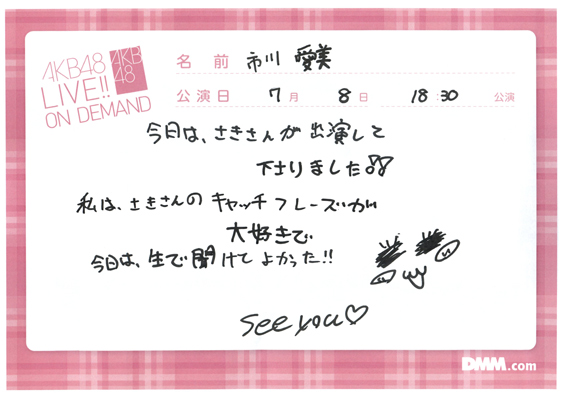 AKB48
LIVE!!
ON DEMAND
AKB
48
名前 市川 愛美
公演日 7月 8日 18:30 公演
今日は、さきさんが出演して
下さりました!!
私は、さきさんのキャッチフレーズが
大好きで
今日は、生で聞けてよかった!!
see you♡
DMM.com